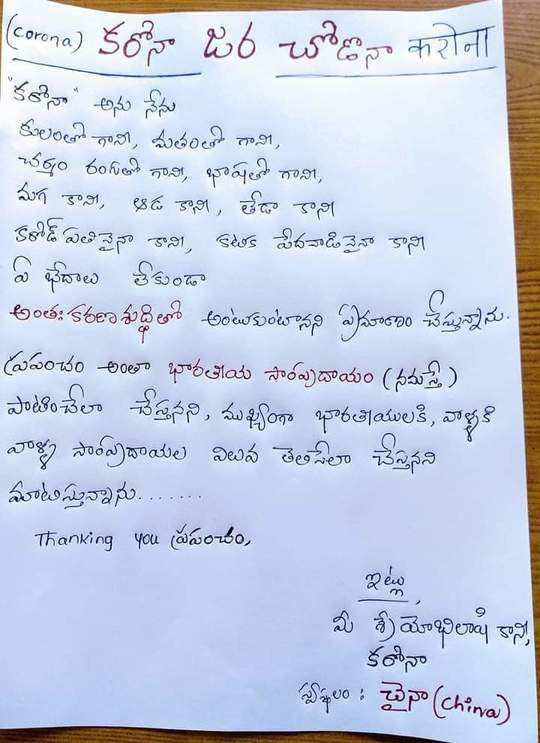 (corona) కరోనా జర చోణనా करोना
"కరోనా" అను నేను
కులంతో గాని, మతంతో గాని,
చర్మం రంగుతో గాని, భాషతో గాని,
మగ కాని, ఆడ కాని, తేడా కాని
కరోడ్ పతినైనా కాని, కటిక పేదవాడినైనా కాని
ఏ భేదాలు లేకుండా
అంతఃకరణశుద్ధితో అంటుకుంటానని ప్రమాణం చేస్తున్నాను.
ప్రపంచం అంతా భారతీయ సాంప్రదాయం (నమస్తే)
పాటించేలా చేస్తానని, ముఖ్యంగా భారతీయులకి, వాళ్ళకి
వాళ్ళ సాంప్రదాయల విలువ తెలిసేలా చేస్తానని
మాటిస్తున్నాను.......
Thanking you ప్రపంచం,
ఇట్లు,
మీ శ్రేయోభిలాషి కాని,
కరోనా
స్వస్థలం : చైనా (China)